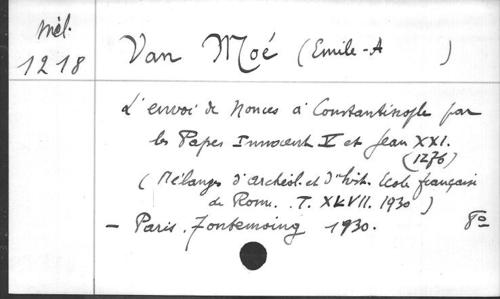 Mél.
1218
Van Moé (Emile-A )
L'envoi de Nonces à Constantinople par
les Papes Innocent V et Jean XXI.
(1276)
(Mélanges d'archéol. et d'hist. Ecole française
de Rome. T. XLVII. 1930)
- Paris. Fontemoing 1930. 8º